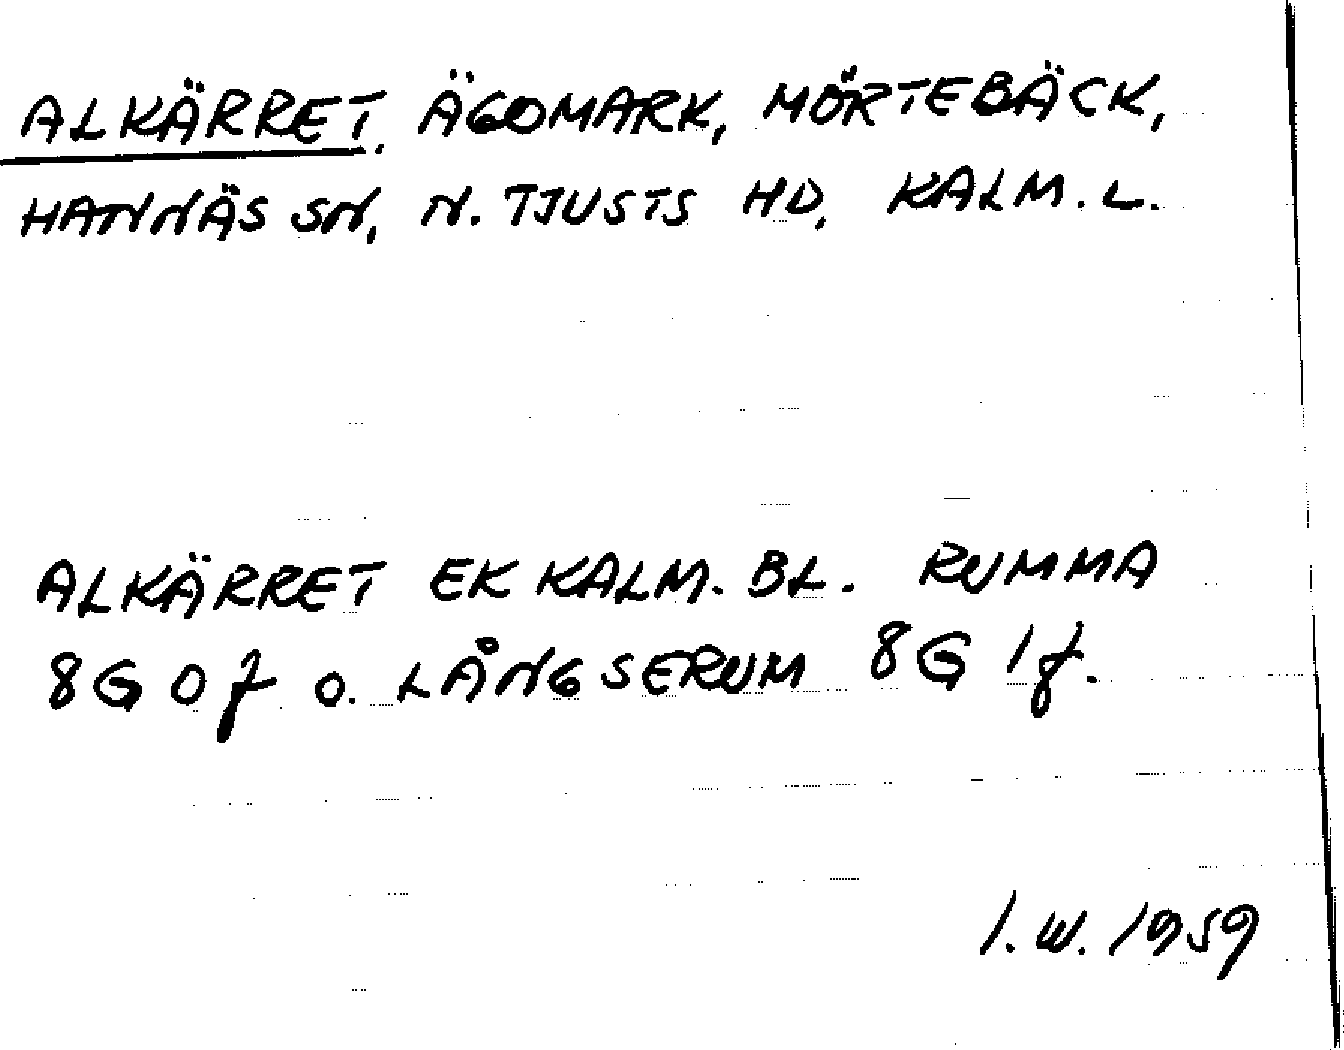 ALKÄRRET, ÄGOMARK, MÖRTEBÄCK,
HANNÄS SN, N. TJUSTS HD, KALM. L.
ALKÄRRET EK KALM. BL. RUMMA
8G 0f o. LÅNGSERUM 8G 1f.
I. W. 1959